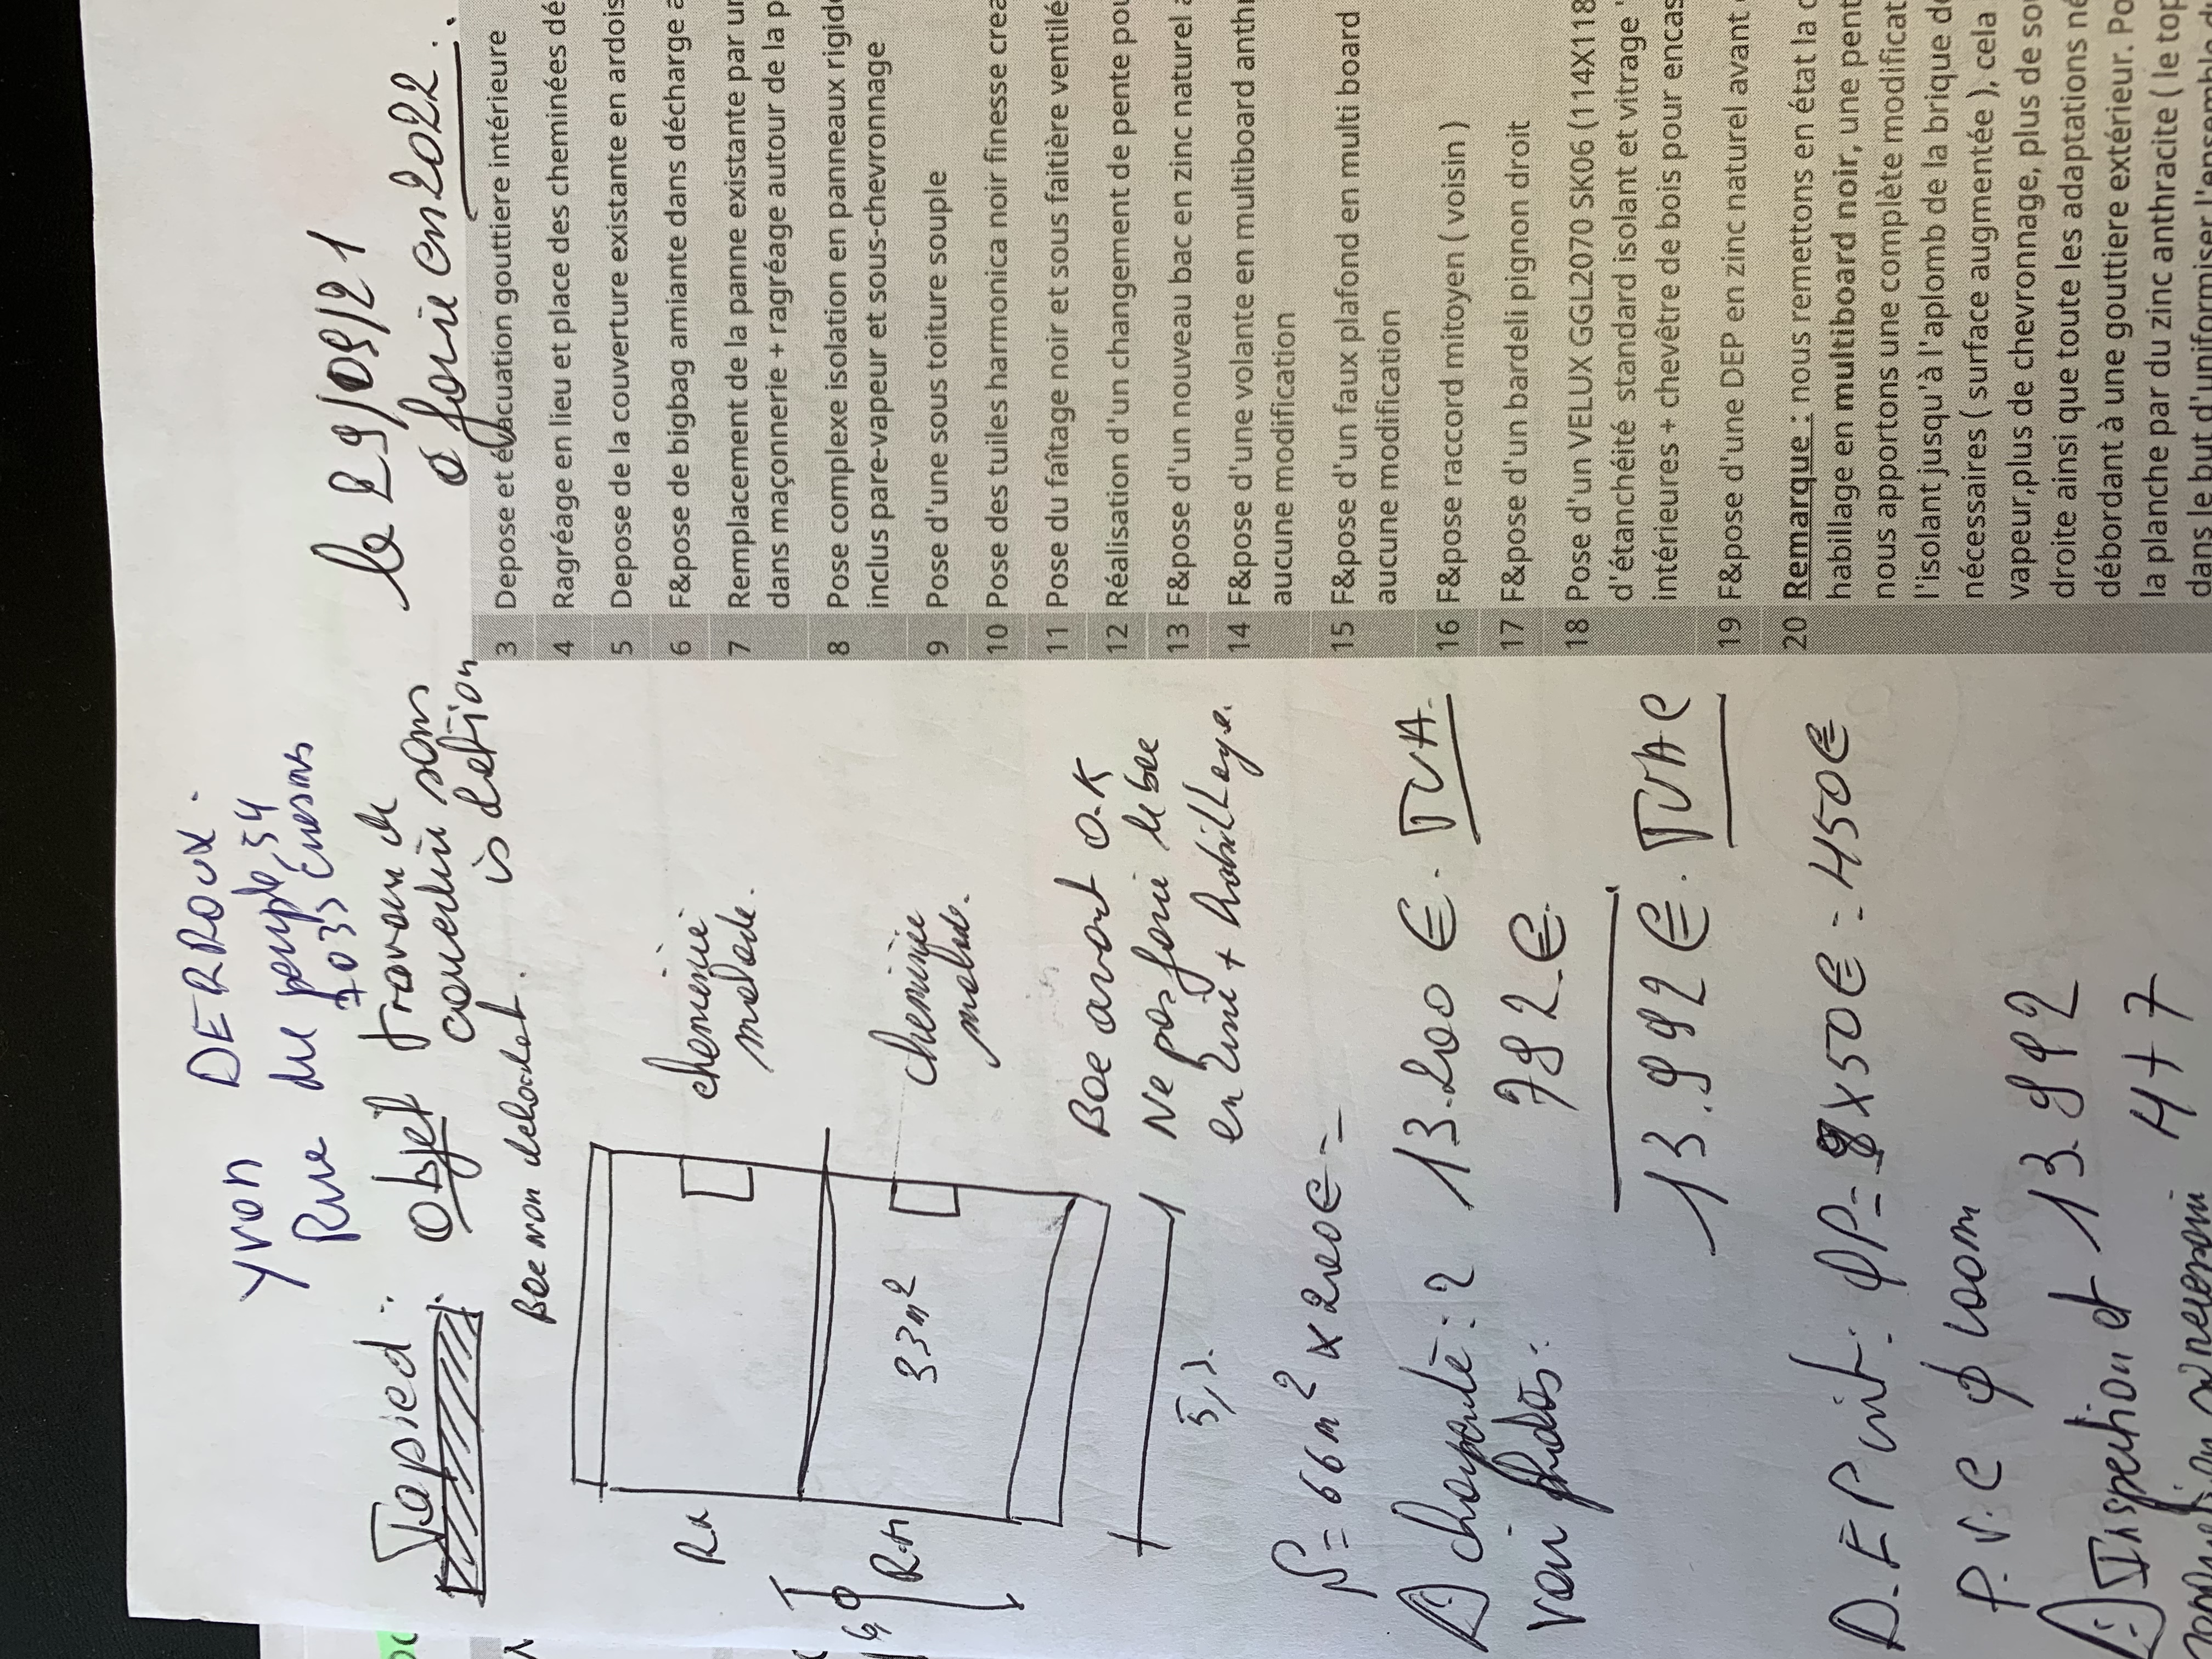 Yvon DERROUX.
Rue du peuple, 54
7033 Cuesmes
le 29/09/21
Tapied : Objet Travaux de
couverture sans
isolation
a faire en 2022.
Bac non débordant.
cheminée
Rx
cheminée
33m²
R-n
Bac avant O.K
Ne pas faire le bac
en zinc + habillage.
5,
S = 66m² x 200€ =
charpente : 2 13.200 €. TVA.
voir photos. 792 €.
13.992 €. TVAC
D.E.P x50€ = 450€
P.V.C φ 100m
Inspection et 13.992
447
3 Depose et évacuation gouttiere intérieure
4 Ragréage en lieu et place des cheminées dé
5 Depose de la couverture existante en ardois
6 F&pose de bigbag amiante dans décharge a
7 Remplacement de la panne existante par un
dans maçonnerie + ragréage autour de la p
8 Pose complexe isolation en panneaux rigid
inclus pare-vapeur et sous-chevronnage
9 Pose d'une sous toiture souple
10 Pose des tuiles harmonica noir finesse crea
11 Pose du faîtage noir et sous faitière ventilé
12 Réalisation d'un changement de pente pou
13 F&pose d'un nouveau bac en zinc naturel a
14 F&pose d'une volante en multiboard anthr
aucune modification
15 F&pose d'un faux plafond en multi board
aucune modification
16 F&pose raccord mitoyen ( voisin )
17 F&pose d'un bardeli pignon droit
18 Pose d'un VELUX GGL2070 SK06 (114X118
d'étanchéité standard isolant et vitrage
intérieures + chevêtre de bois pour encas
19 F&pose d'une DEP en zinc naturel avant
20 Remarque : nous remettons en état la c
habillage en multiboard noir, une pent
nous apportons une complète modificat
l'isolant jusqu'à l'aplomb de la brique de
nécessaires ( surface augmentée ), cela
vapeur,plus de chevronnage, plus de sou
droite ainsi que toute les adaptations né
débordant à une gouttiere extérieur. Po
la planche par du zinc anthracite ( le top
dans le but d'uniformiser l'ensemble de